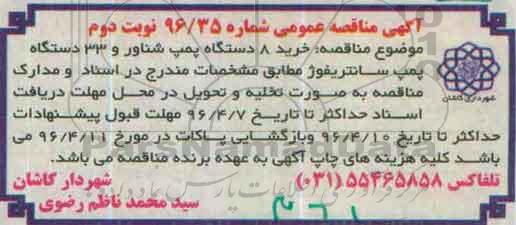 آگهی مناقصه عمومی شماره ۹۶/۳۵ نوبت دوم
موضوع مناقصه: خرید ۸ دستگاه پمپ شناور و ۳۳ دستگاه
پمپ سانتریفوژ مطابق مشخصات مندرج در اسناد و مدارک
مناقصه به صورت تخلیه و تحویل در محل مهلت دریافت
اسناد حداکثر تا تاریخ ۹۶/۴/۷ مهلت قبول پیشنهادات
حداکثر تا تاریخ ۹۶/۴/۱۰ وبازگشایی پاکات در مورخ ۹۶/۴/۱۱ می
باشد کلیه هزینه های چاپ آگهی به عهده برنده مناقصه می باشد.
تلفاکس ۵۵۴۶۵۸۵۸ (۰۳۱)
شهردار کاشان
سید محمد ناظم رضوی
شهرداری کاشان
ParsNamadData